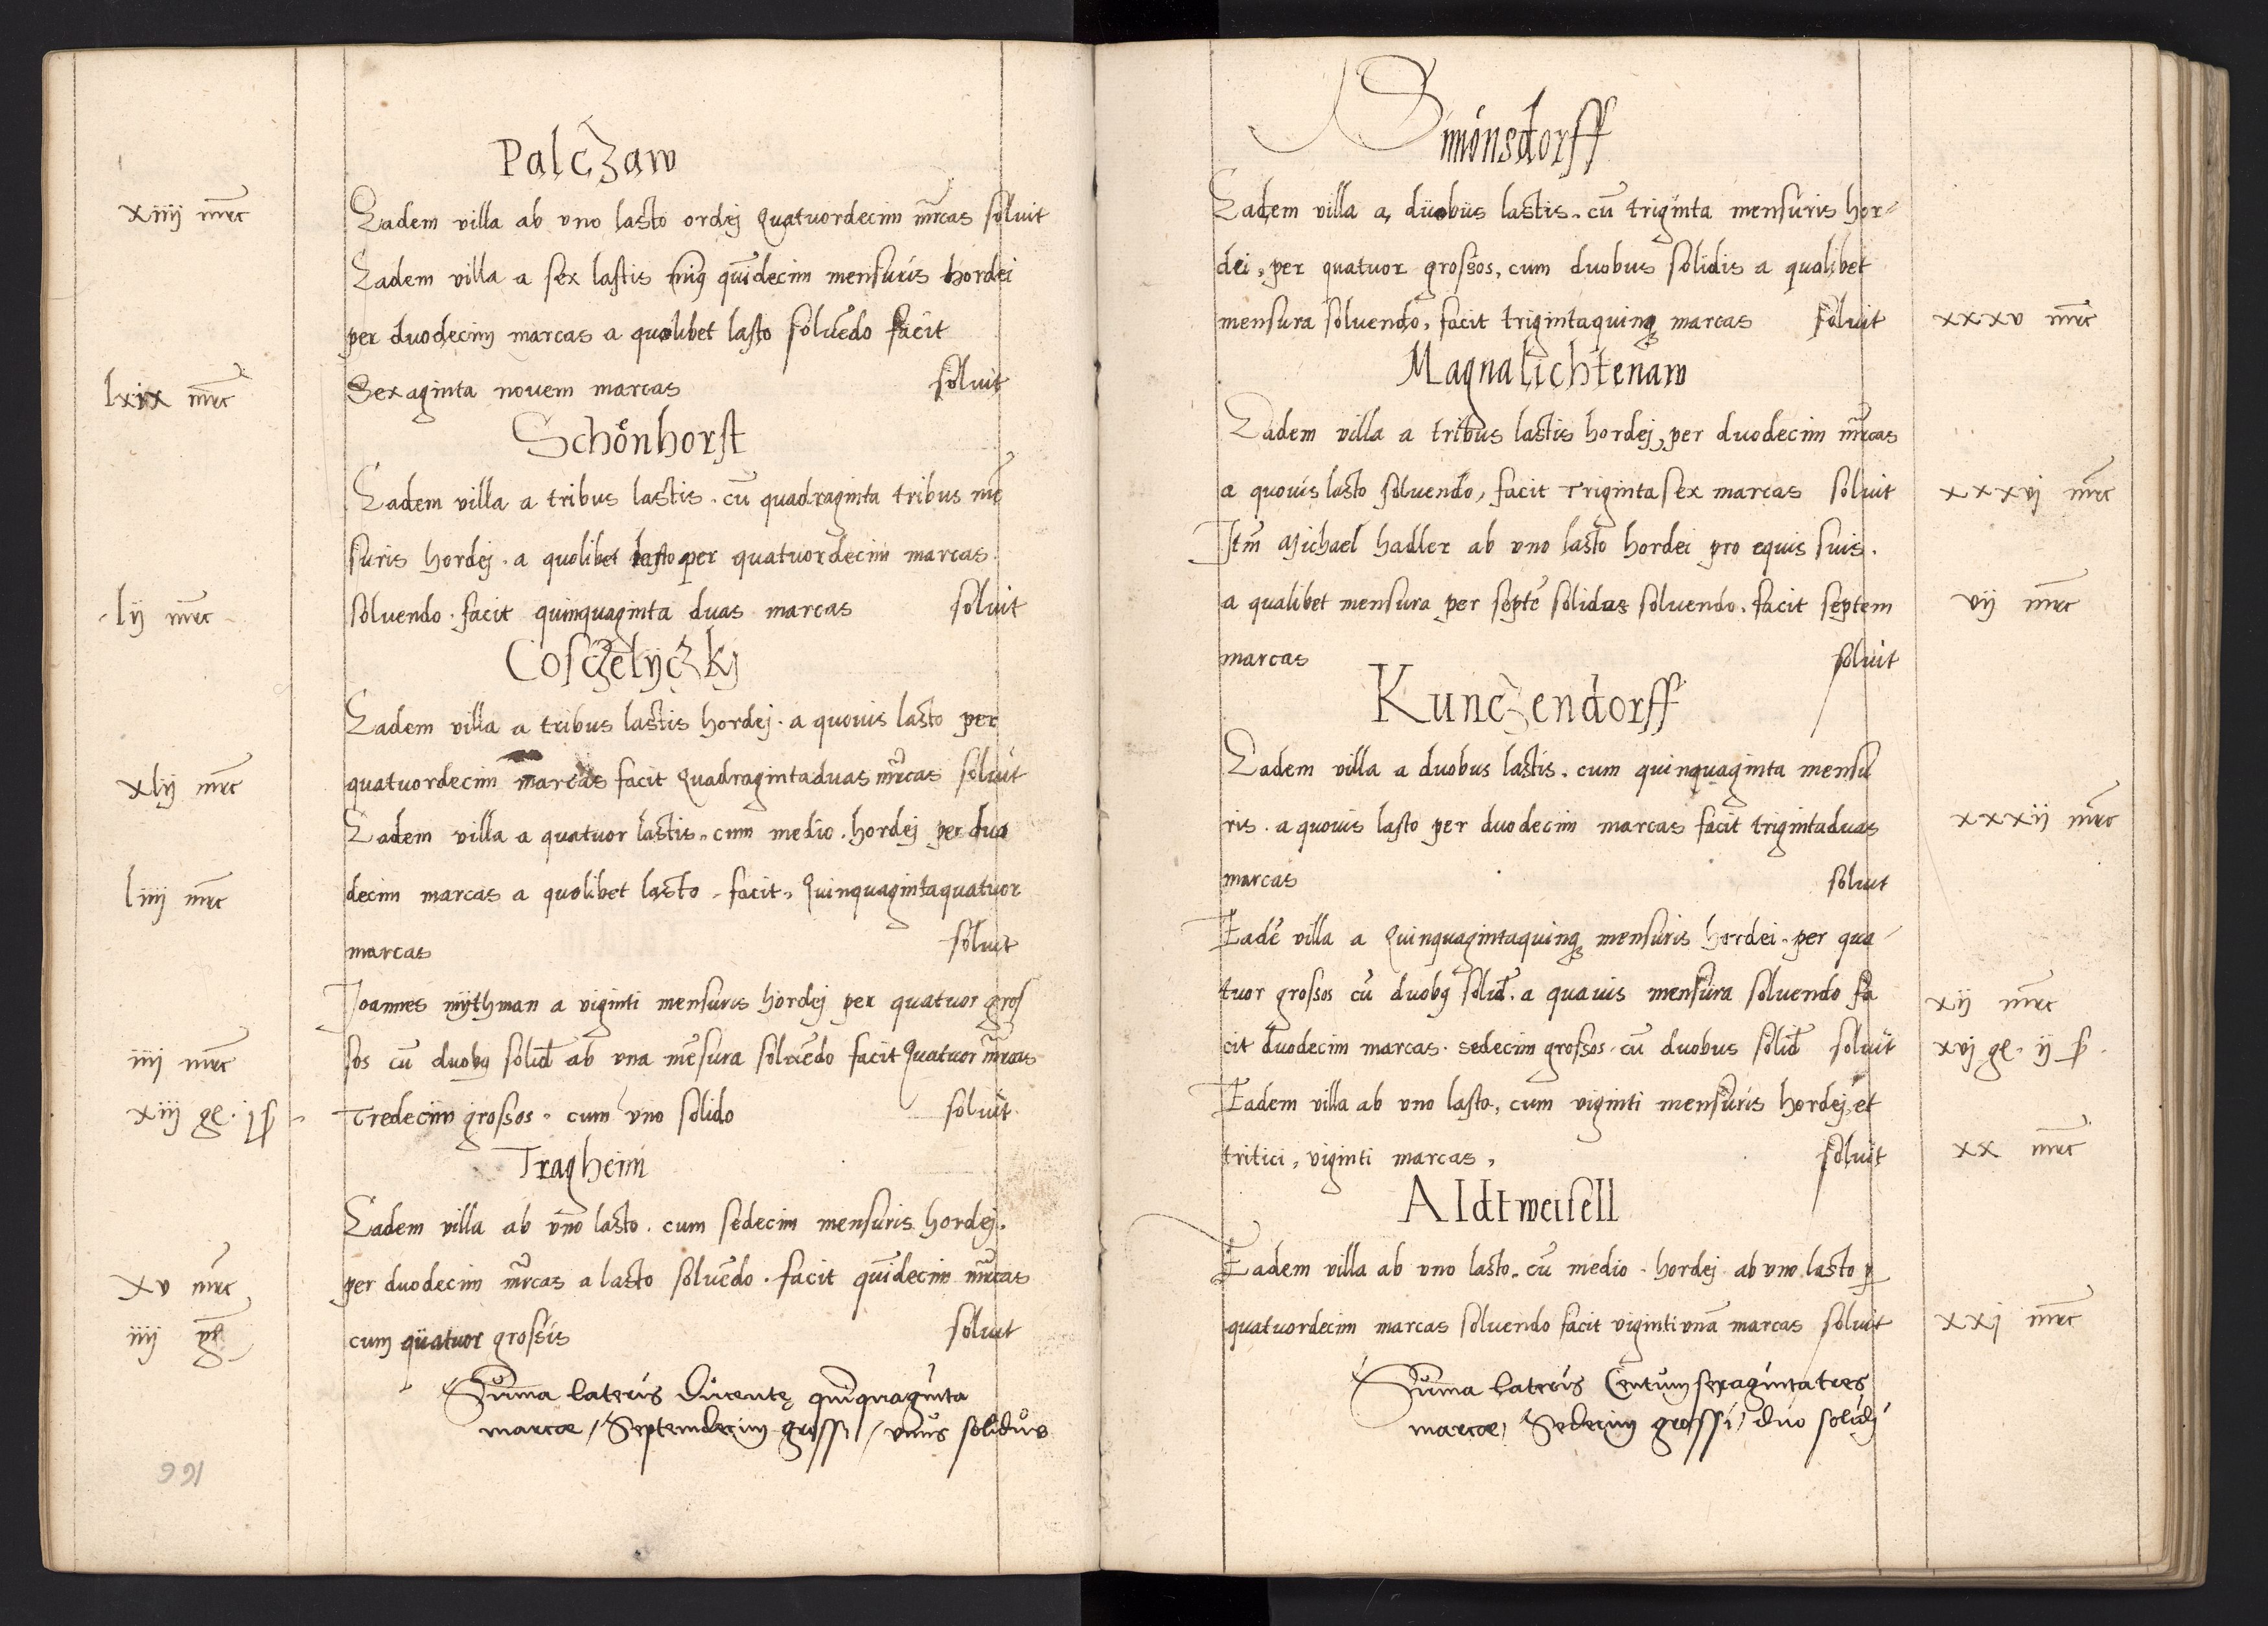 Palczaw
xiiij mrc
Eadem villa ab vno lasto ordej Quatuordecim mrcas soluit
Eadem villa a sex lastis quīdecim mensuris hordei
per duodecim marcas a quolibet lasto soluēdo facit
lxix mrc
Sexaginta novem marcas soluit
Schönhorst
Eadem villa a tribus lastis. cū quadraginta tribus mē
suris hordej. a quolibet lasto per quatuordecim marcas.
lij mrc
soluendo. facit quinquaginta duas marcas soluit
Cosczelyczkj
Eadem villa a tribus lastis hordej. a quouis lasto per
xlij mrc
quatuordecim marcas facit Quadragintaduas mrcas soluit
Eadem villa a quatuor lastis. cum medio. hordej per duo
liiij mrc
decim marcas a quolibet lasto. facit. Quinquagintaquatuor
marcas soluit
Joannes mythman a viginti mensuris hordej per quatuor gros
iiij mrc
sos cū duobꝫ solid ab vna mēsura soluēdo facit Quatuor mrcas
xiij gl. j ꝑ
Tredecim grossos. cum vno solido soluit
Tragheim
Eadem villa ab vno lasto. cum sedecim mensuris hordej.
xv mrc
per duodecim mrcas a lasto soluēdo. facit quīdecim mrcas
iiij gl
cum quatuor grossis soluit
Suma lateris Ducente quīquaginta
marcæ / Septemdecim grossi / vnus solidus
166
Simonsdorff
Eadem villa a duobus lastis. cū triginta mensuris hor-
dei, per quatuor grossos, cum duobus solidis a qualibet
mensura soluendo, facit trigintaquinqꝫ marcas soluit
xxxv mrc
Magnalichtenaw
Eadem villa a tribus lastis hordej, per duodecim mrcas
a quouis lasto soluendo, facit Triginta sex marcas soluit
xxxvj mrc
Itm Michael hadler ab vno lasto hordei pro equis suis.
a qualibet mensura per septē solidus soluendo. facit septem
vij mrc
marcas soluit
Kunczendorff
Eadem villa a duobus lastis. cum quinquaginta mensu
ris. a quouis lasto per duodecim marcas facit trigintaduas
xxxij mrc
marcas soluit
Eadē villa a Quinquagintaquinqꝫ mensuris hordei. per qua-
tuor grossos cū duobꝫ solid. a quauis mensura soluendo fa
xij mrc
cit duodecim marcas. sedecim grossos. cū duobus solid soluit
xvj gl. ij ꝑ.
Eadem villa ab vno lasto, cum viginti mensuris hordej et
tritici, viginti marcas, soluit
xx mrc
Aldtweisell
Eadem villa ab vno lasto. cū medio. hordej ab vno lasto ꝑ
quatuordecim marcas soluendo facit vigintivnā marcas soluit
xxj mrc
Suma lateris Centum sexaginta tres
marcæ, Sedecim grossi, duo solidj